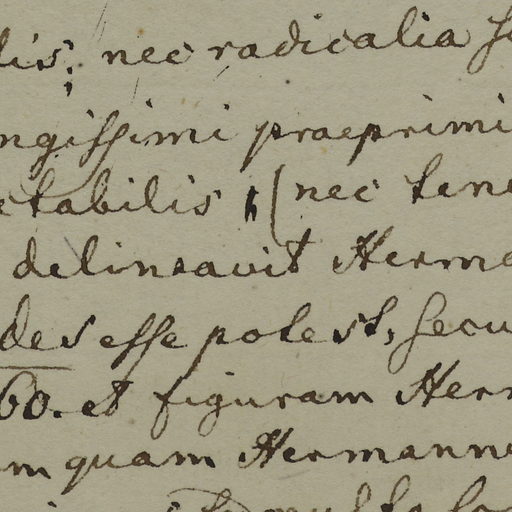 lis; nec radicalia
ngissimi praeprimi
ctabilis, (nec tene
delineavit Herma
des esse potest, secu
60. et figuram Herm
m quam Hermann